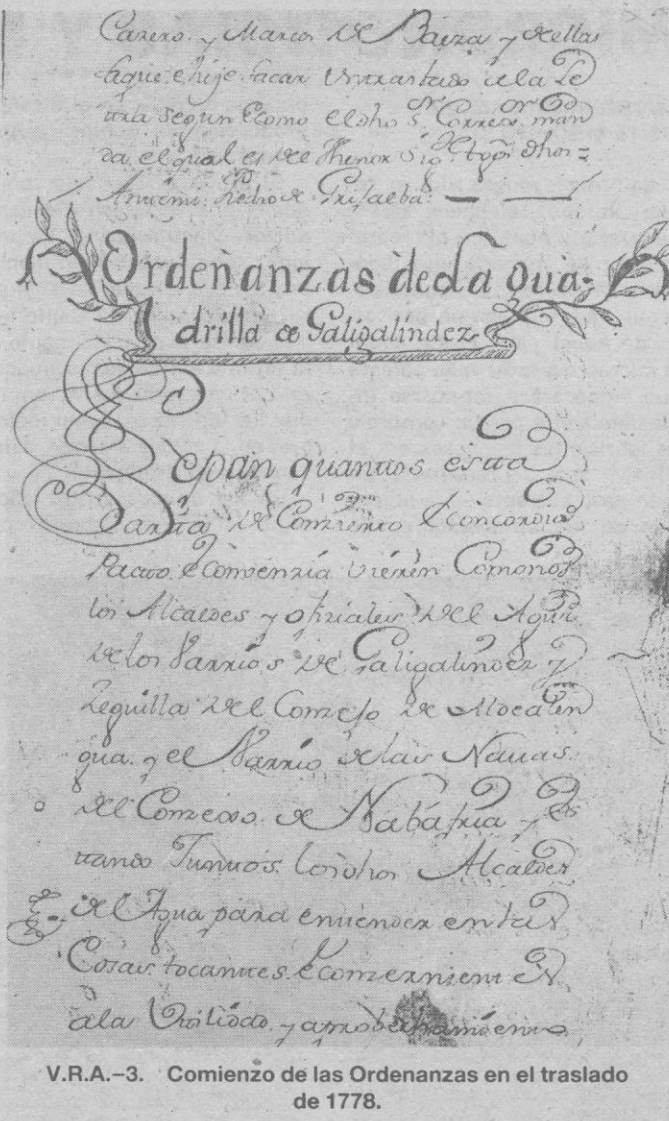 Carero. y Marcos de Baeza y dellas
saque e hije sacar un traslado de la Le
tra segun E como el dho Sr. Corregr. man
da, el qual es del thenor Sigte.
Antemi: Pedro de Grijalba:
Ordenanzas de la qua-
drilla de Galigalindez
Sepan quantos esta
Carta de Conzierto E concordia
Pacto E convenzia vieren Como nos
los Alcaldes y ofiziales del Agua
de los Varrios de Galigalindez y
Requilla del Conzejo de Mocalen
gua. y el Varrio de las Navas
del Conzejo de Nabafria y Es
tando Juntos los dhos Alcaldes
del Agua para entender en las
Cosas tocantes E conzernientes
a la Utilidad y aprobechamiento
V.R.A.–3. Comienzo de las Ordenanzas en el traslado
de 1778.